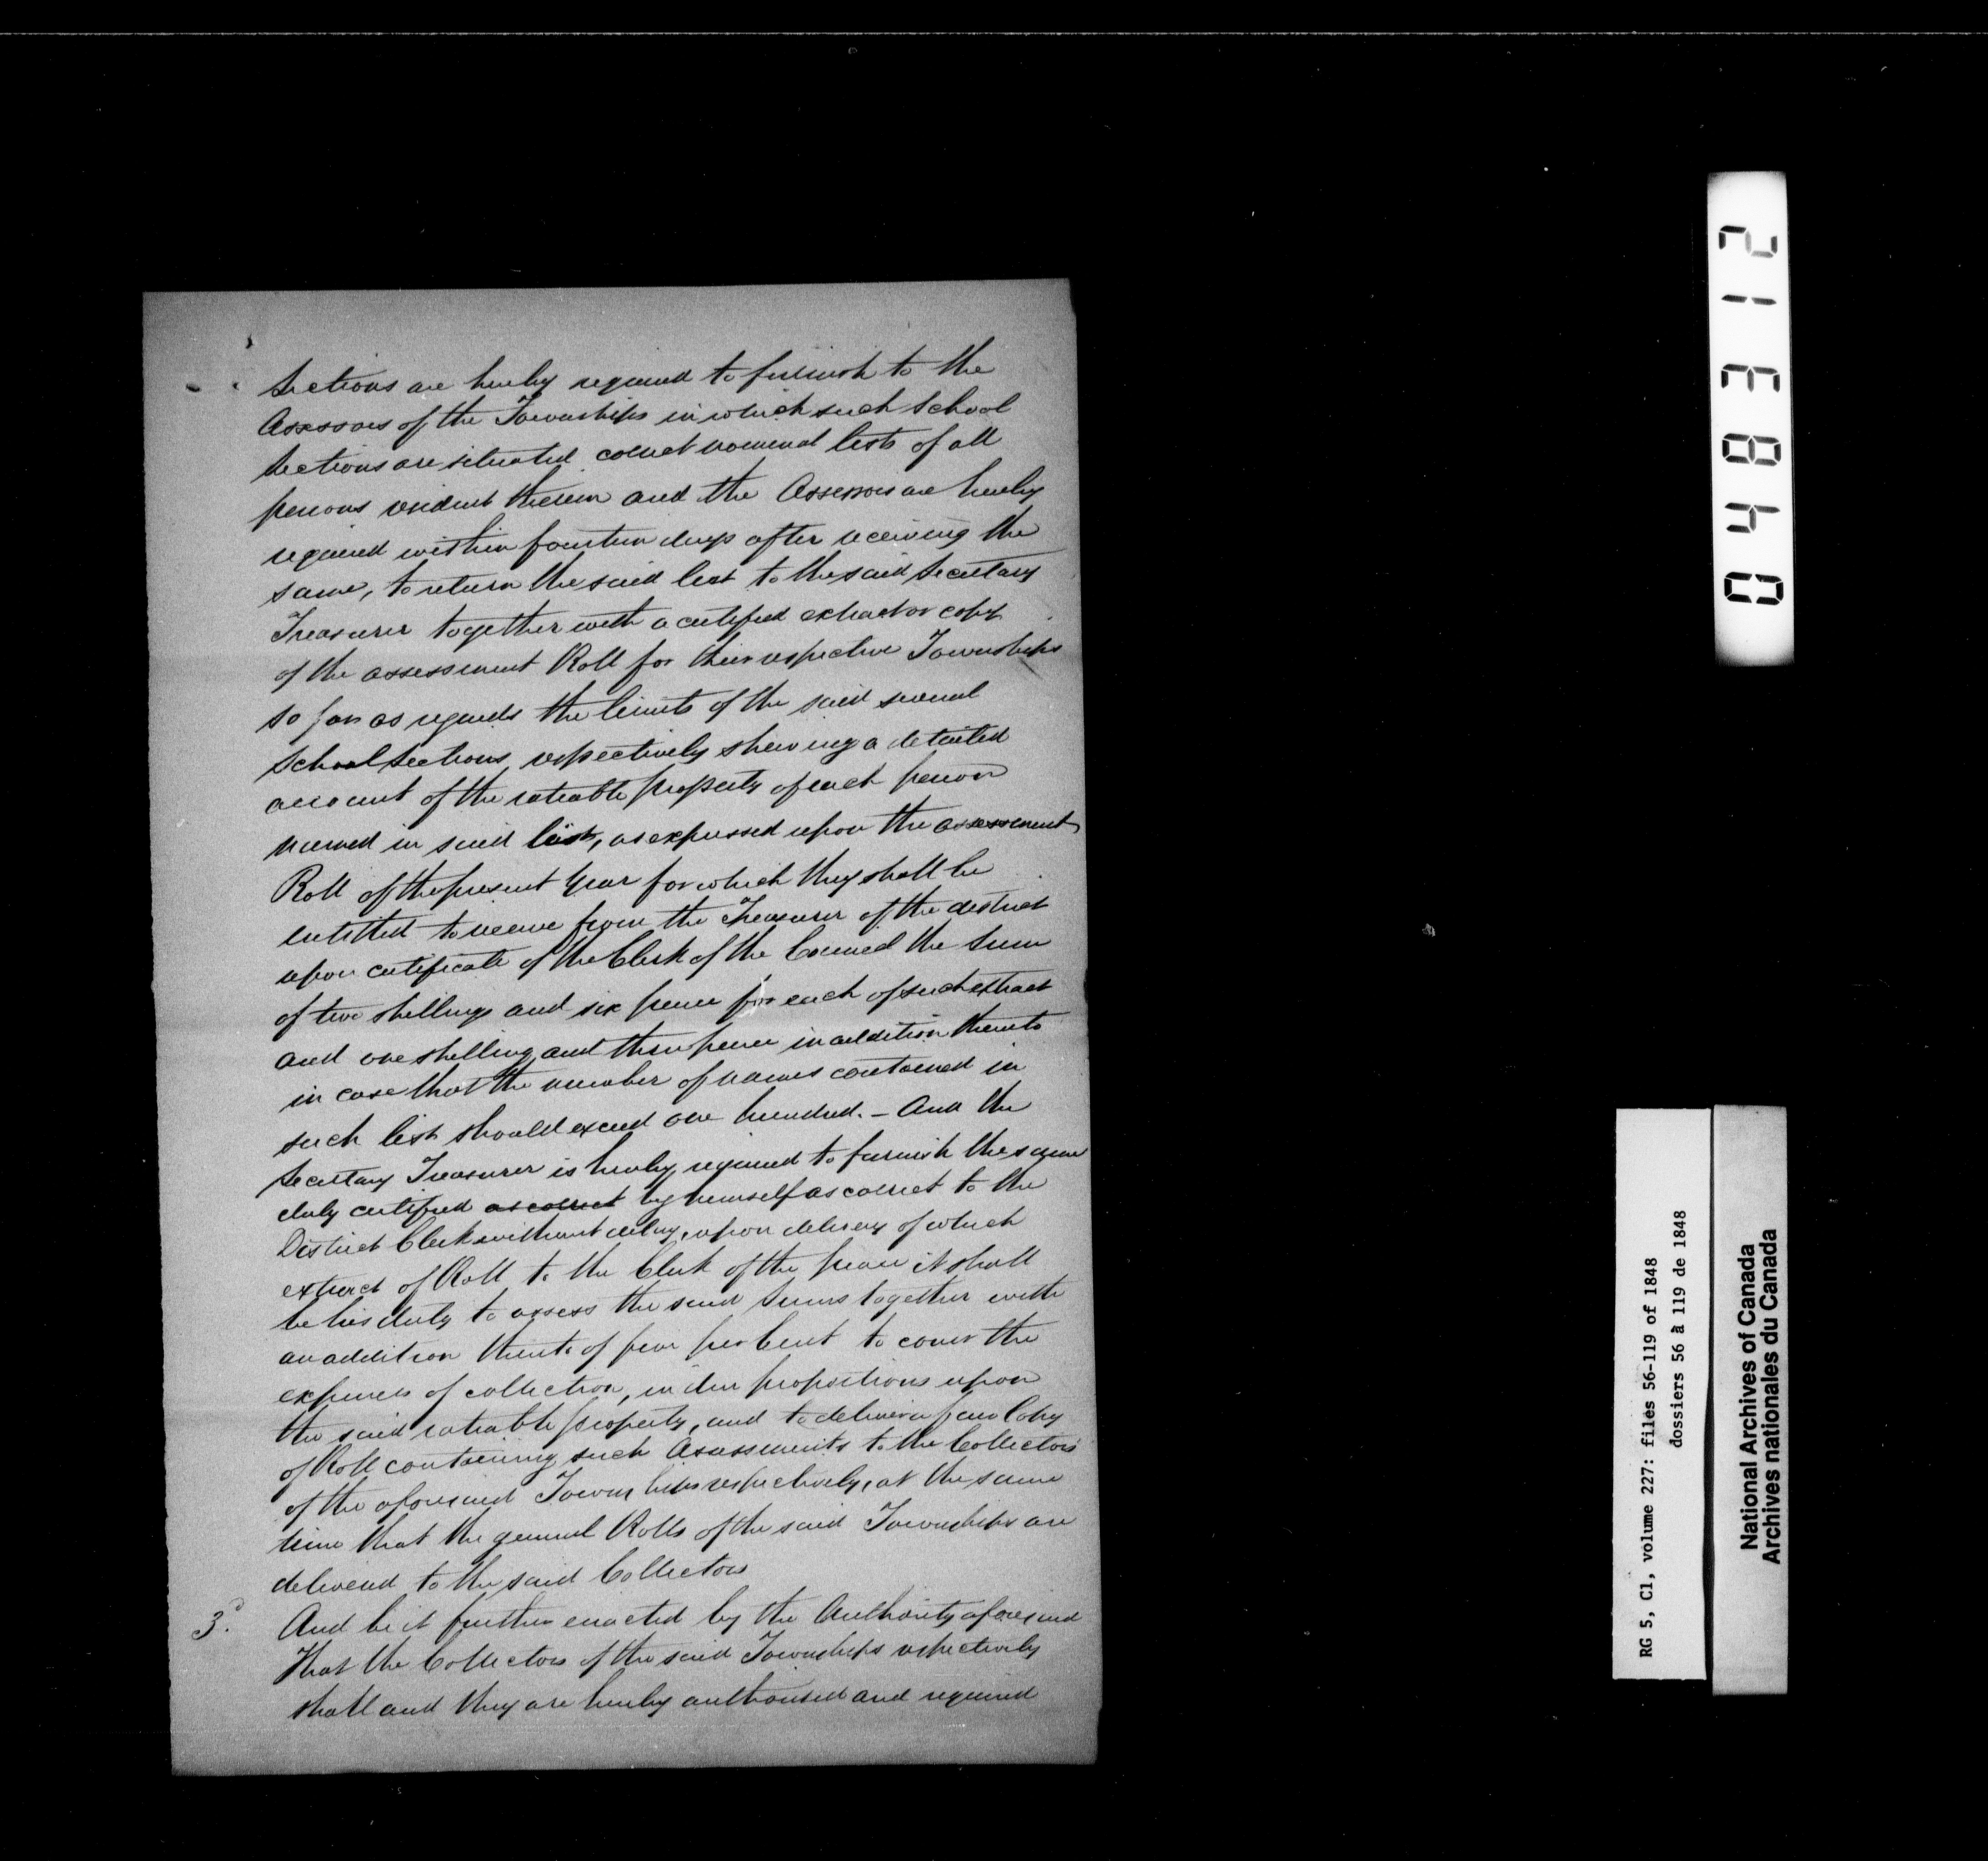 Sections are hereby required to furnish to the
Assessors of the Townships in which such School
Sections are situated correct nominal lists of all
persons resident therein and the Assessors are hereby
required within fourteen days after receiving the
same, to return the said list to the said Secretary
Treasurer together with a certified extract or copy
of the assessment Roll for their respective Townships
so far as regards the limits of the said several
School Sections, respectively shewing a detailed
account of the rateable property of each person
named in said list, as expressed upon the assessment
Roll of the present Year for which they shall be
entitled to receive from the Treasurer of the district
upon certificate of the Clerk of the Council the Sum
of two shillings and six pence for each of such extract
and one shilling and three pence in addition thereto
in case that the number of names contained in
such list should exceed one hundred. - And the
Secretary Treasurer is hereby required to furnish the same
duly certified as correct by himself as correct to the
District Clerk without delay, upon delivery of which
extract of Roll to the Clerk of the peace it shall
be his duty to assess the said Sums together with
an addition thereto of per Cent to cover the
expenses of collection, in due proportions upon
the said rateable property, and to deliver a fair Copy
of Roll containing such Assessments to the Collectors
of the aforesaid Townships respectively, at the same
time that the general Rolls of the said Townships are
delivered to the said Collectors
3. And be it further enacted by the Authority aforesaid
That the Collectors of the said Townships respectively
shall and they are hereby authorised and required
048312
RG 5, C1, volume 227: files 56-119 of 1848
dossiers 56 à 119 de 1848
National Archives of Canada
Archives nationales du Canada